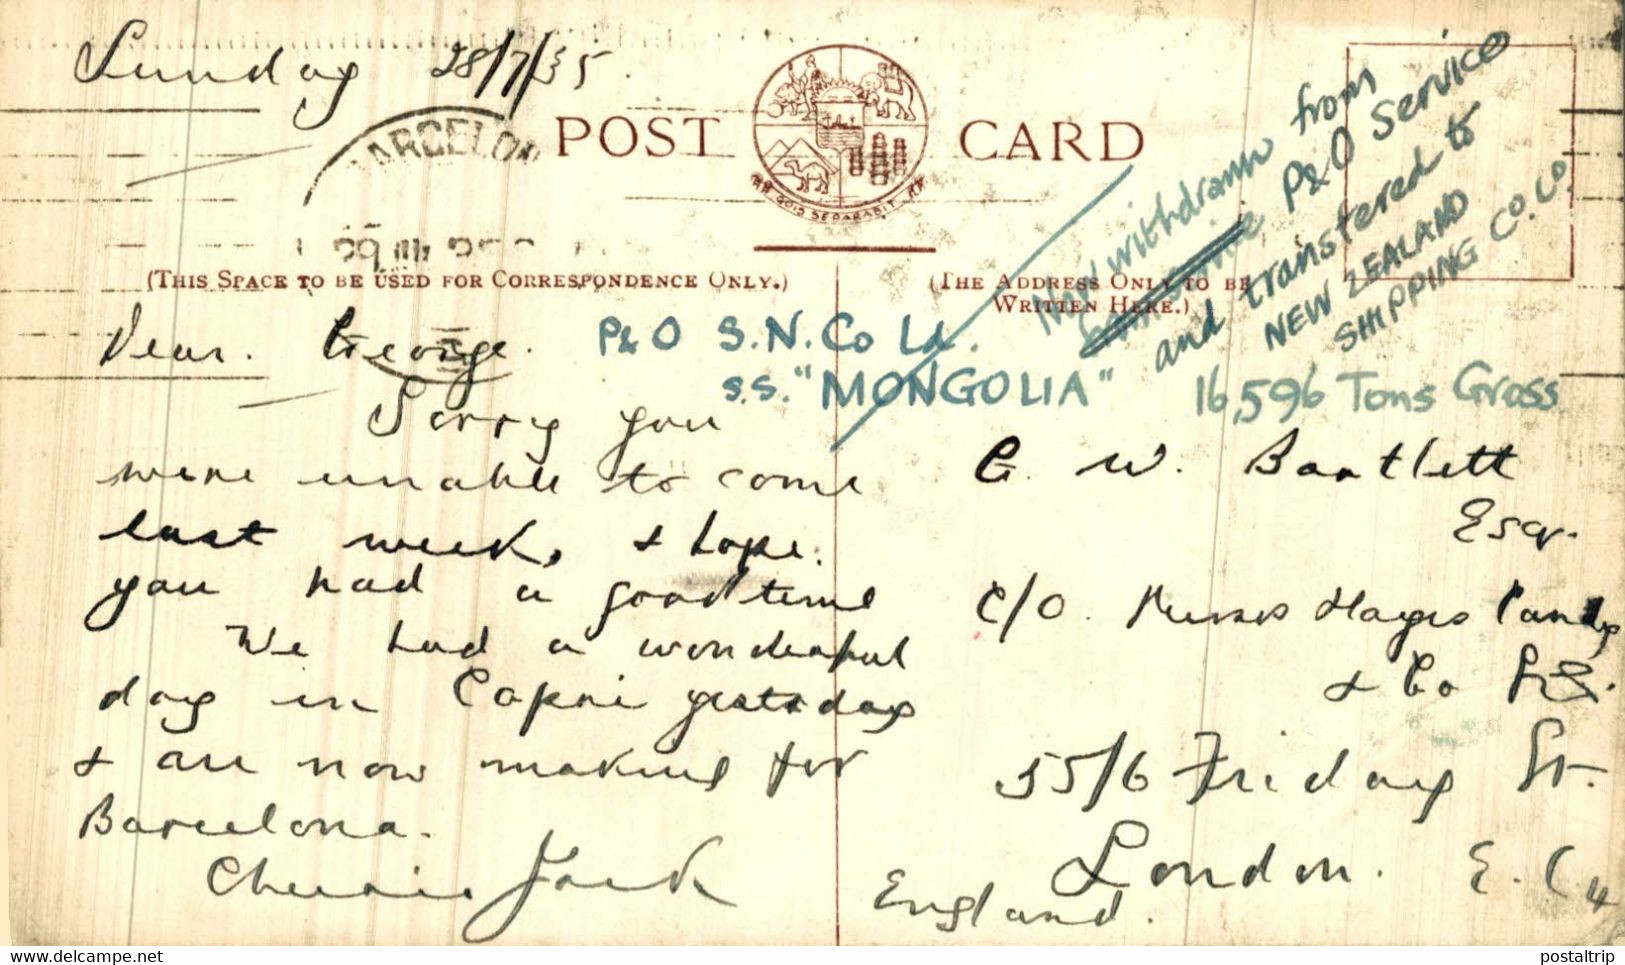 Sunday 28/7/35.
BARCELON
POST CARD
QUIS SEPARABIT
(THIS SPACE TO BE USED FOR CORRESPONDENCE ONLY.)
(THE ADDRESS ONLY TO BE
WRITTEN HERE.)
Now withdrawn from
P&O Service
and transfered to
NEW ZEALAND
SHIPPING CO. LD.
P&O S.N. Co Ld.
S.S. "MONGOLIA"
16,596 Tons Gross
Dear George.
Sorry you
were unable to come
last week, & hope.
you had a good time
We had a wonderful
day in Capri yesterday
& are now making for
Barcelona.
Cheerio Jack
G. W. Bartlett
Esq.
C/O. Messrs Hayes Candy
& Co
55/6 Friday St.
London. E.C.4
England.
www.delcampe.net
postaltrip